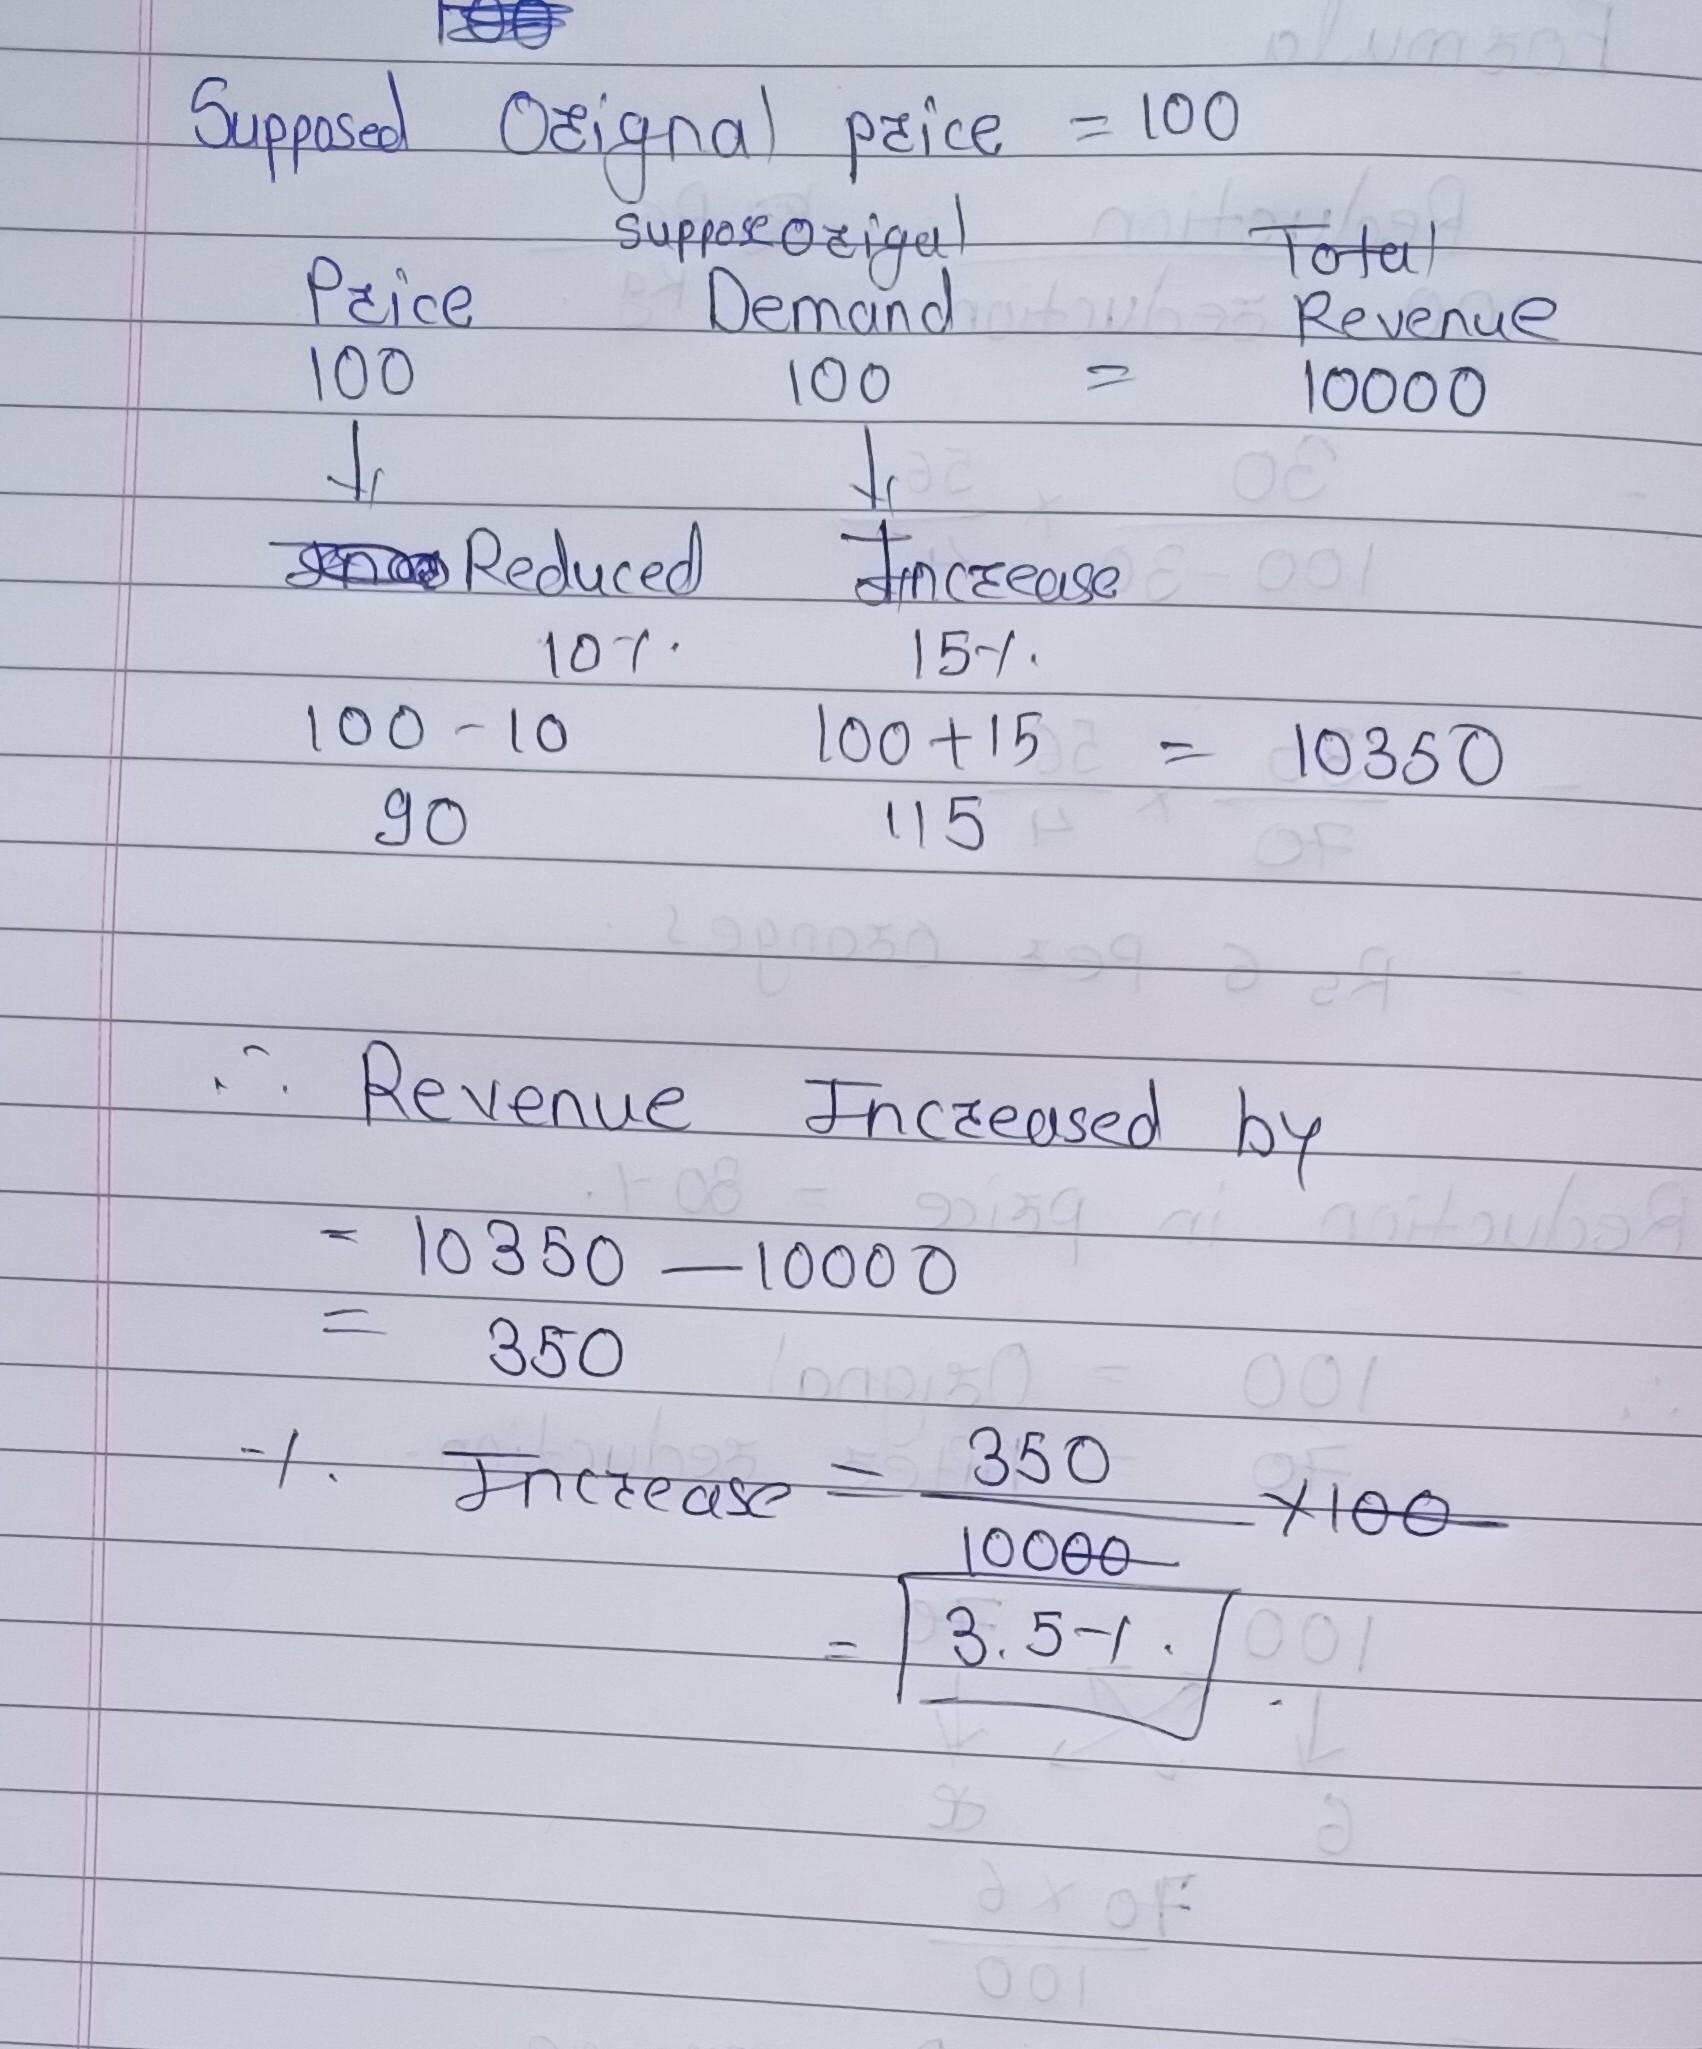 Supposed Orignal price = 100
suppose origal
Total
Price Demand Revenue
100 100 = 10000
Reduced Increase
10% 15%
100-10 100+15 = 10350
90 115
∴ Revenue Increased by
= 10350 - 10000
= 350
% Increase = 350 × 100
10000
= 3.5%